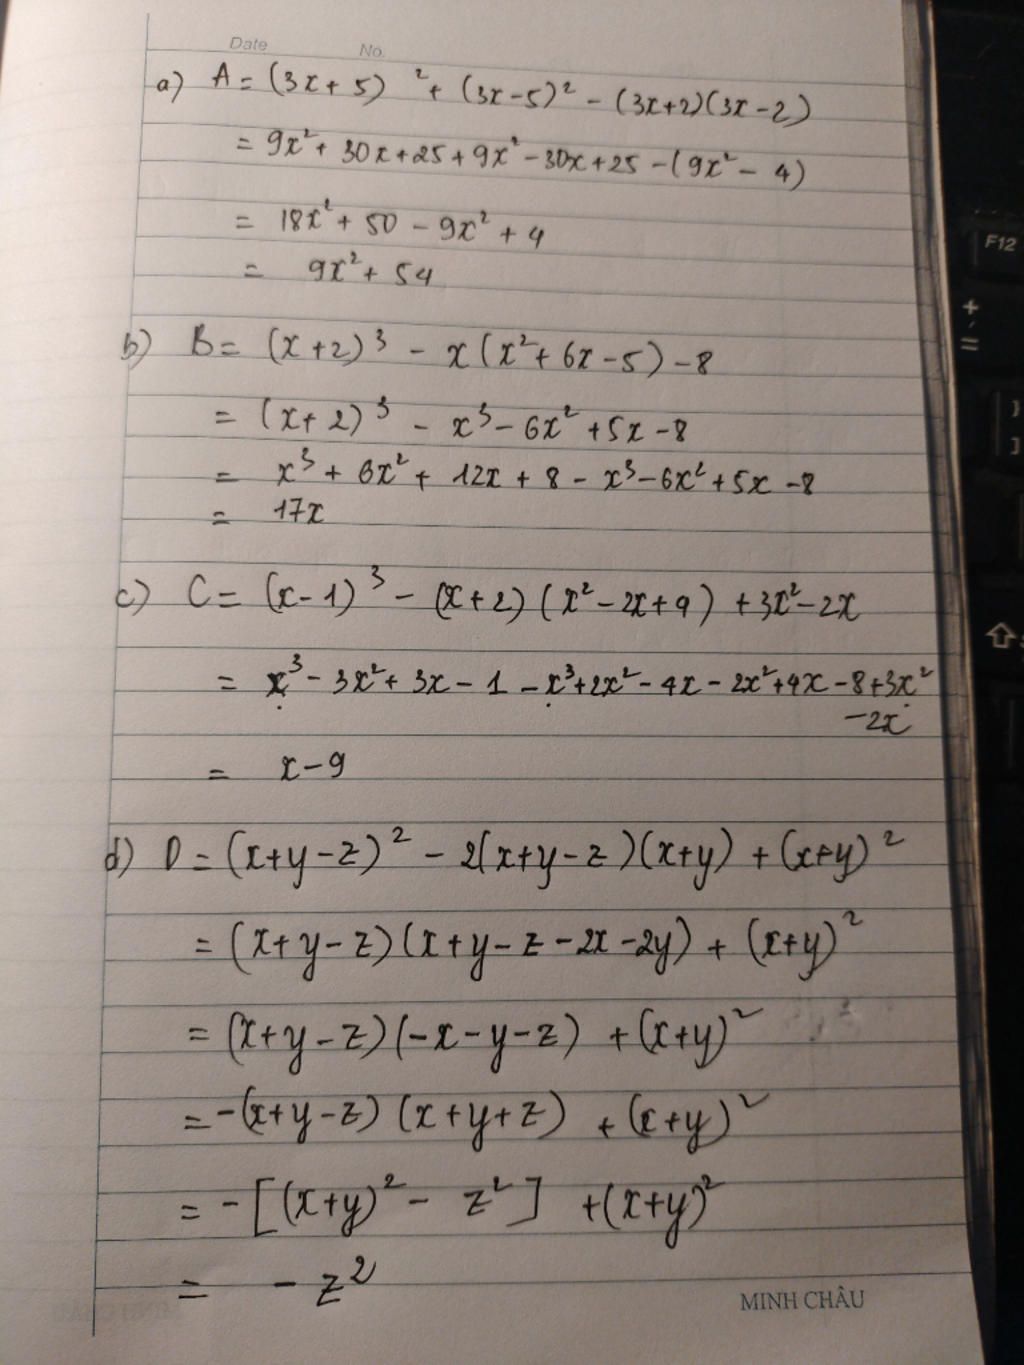 Date No.
a) A = (3x+5)² + (3x-5)² - (3x+2)(3x-2)
= 9x² + 30x + 25 + 9x² - 30x + 25 - (9x² - 4)
= 18x² + 50 - 9x² + 4
= 9x² + 54
b) B = (x+2)³ - x(x² + 6x - 5) - 8
= (x+2)³ - x³ - 6x² + 5x - 8
= x³ + 6x² + 12x + 8 - x³ - 6x² + 5x - 8
= 17x
c) C = (x-1)³ - (x+2)(x² - 2x + 9) + 3x² - 2x
= x³ - 3x² + 3x - 1 - x³ + 2x² - 4x - 2x² + 4x - 8 + 3x²
- 2x
= x - 9
d) D = (x+y-z)² - 2(x+y-z)(x+y) + (x+y)²
= (x+y-z)(x+y-z-2x-2y) + (x+y)²
= (x+y-z)(-x-y-z) + (x+y)²
= -(x+y-z)(x+y+z) + (x+y)²
= -[(x+y)² - z²] + (x+y)²
= - z²
MINH CHÂU
F12
+
=
}
]